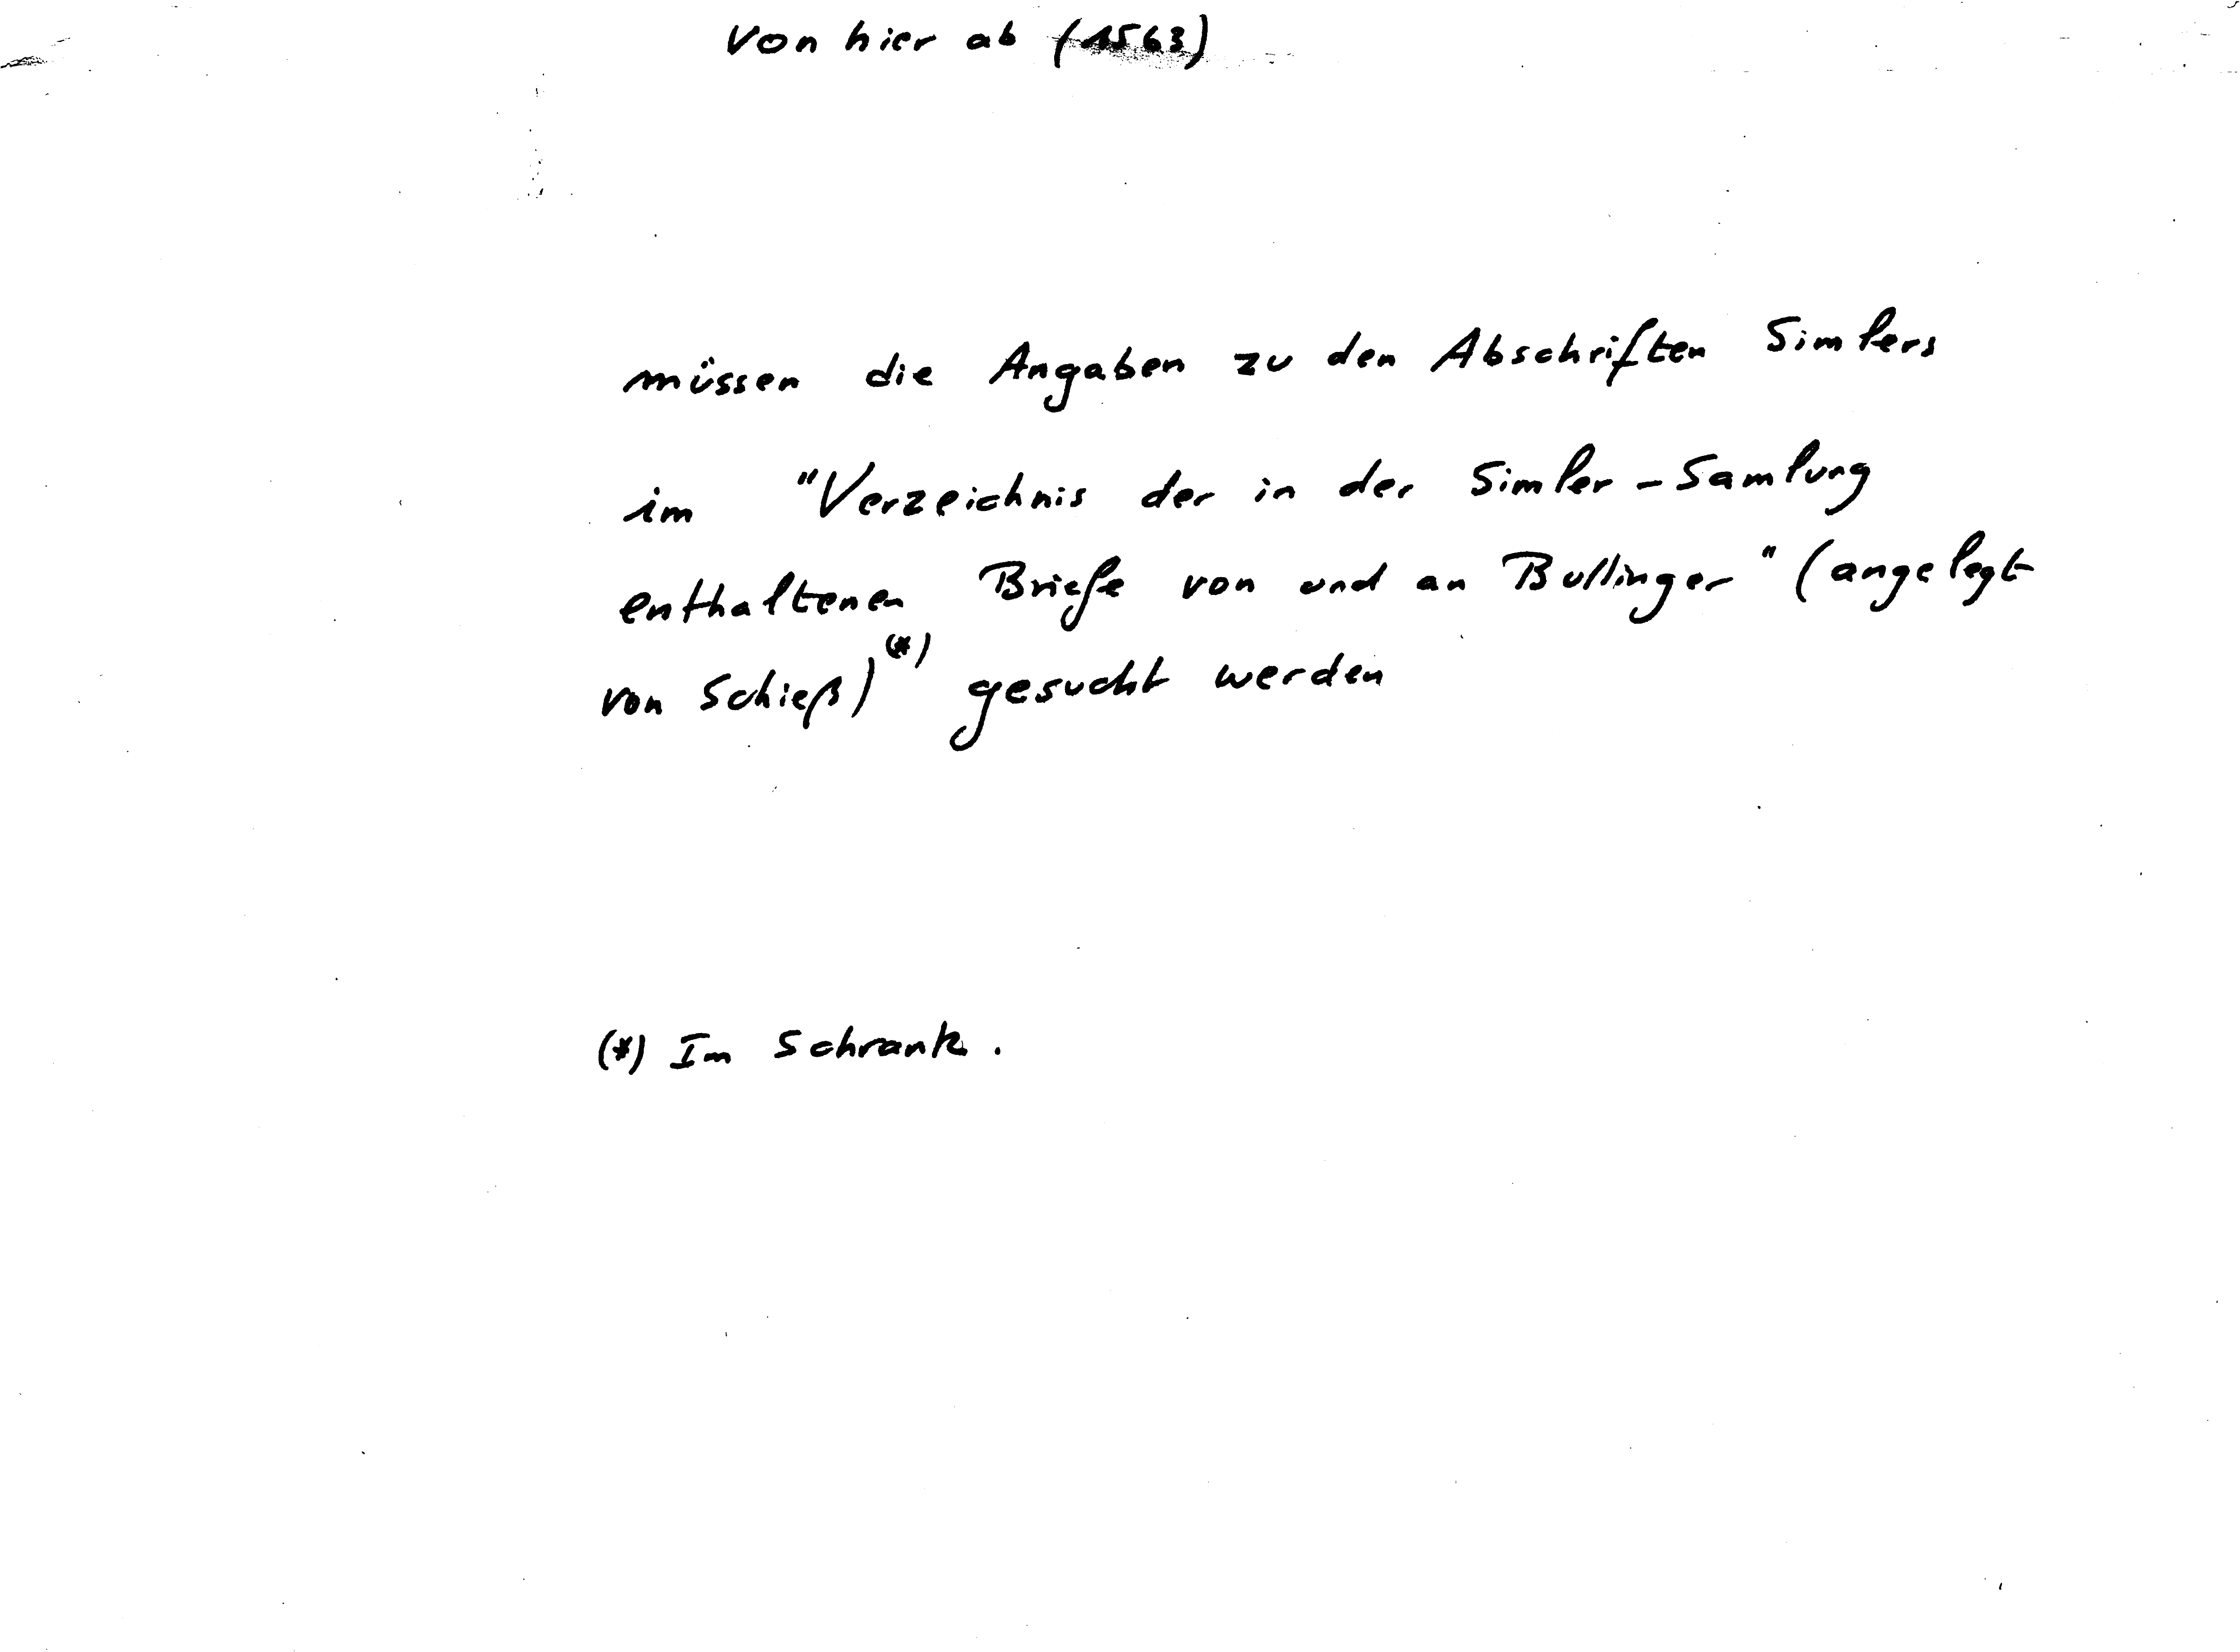 von hier ab (1563)
müssen die Angaben zu den Abschriften Simlers
im "Verzeichnis der in der Simler-Samlung
enthaltenen Briefe von und an Bullinger" (angelegt
von Schieß)(*) gesucht werden
(*) Im Schrank.